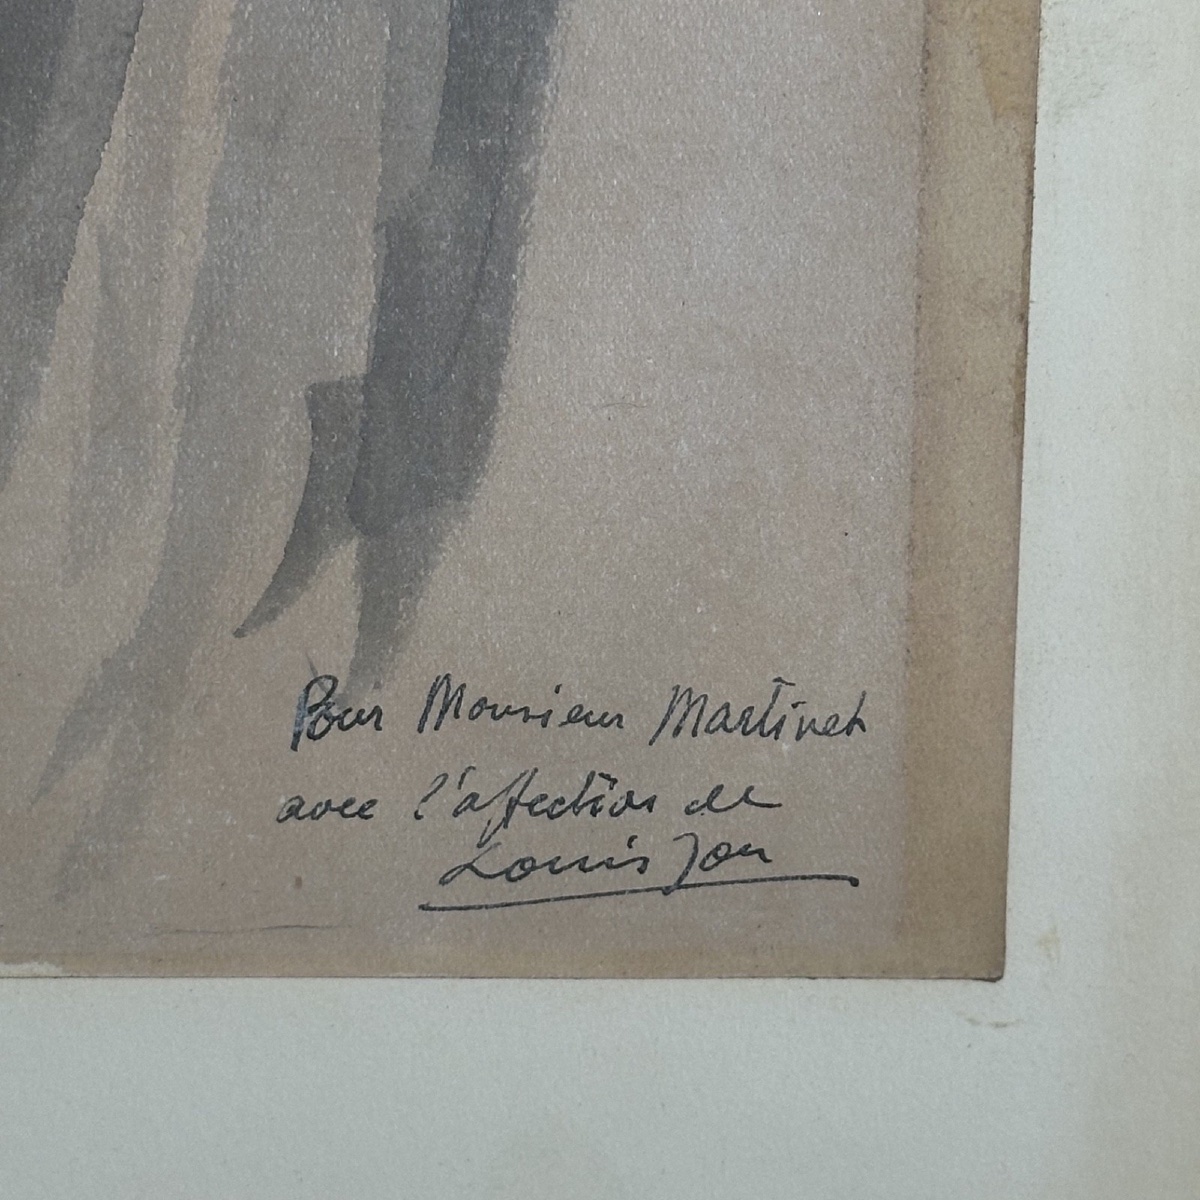 Pour Monsieur Martinet
avec l'affection de
Louis Jou